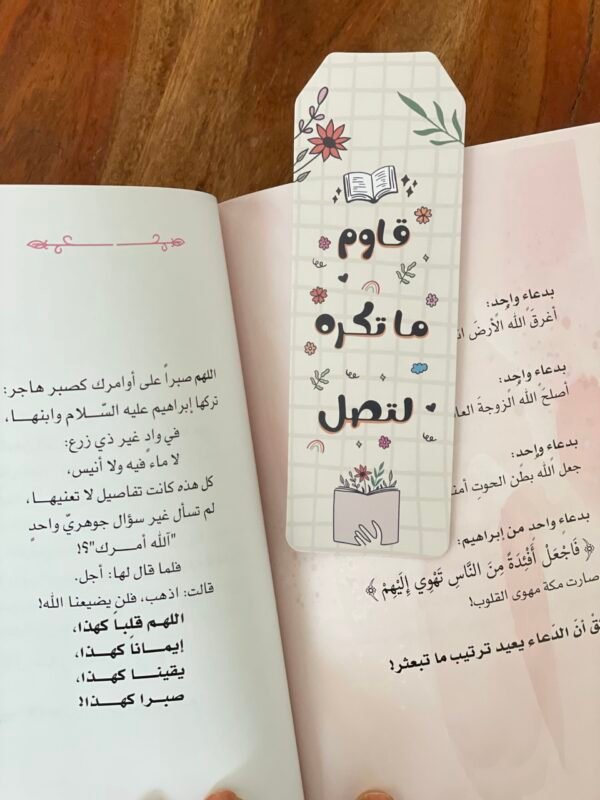 بدعاء واحِد:
أغرقَ الله الأرضَ
بدعاء واحِد:
أصلحَ الله الزوجةَ
بدعاء واحِد:
جعل الله بطن الحوتِ
بدعاءٍ واحِدٍ من إبراهيم:
﴿ فَاجْعَلْ أَفْئِدَةً مِنَ النَّاسِ تَهْوِي إِلَيْهِمْ ﴾
صارت مكة مهوى القلوب!
أنّ الدّعاء يعيد ترتيب ما تبعثر!
قاوم
ما تكره
لتصل
اللهم صبراً على أوامرك كصبر هاجر:
تركها إبراهيم عليه السّلام وابنها،
في وادٍ غير ذي زرع:
لا ماء فيه ولا أنيس،
كل هذه كانت تفاصيل لا تعنيها،
لم تسأل غير سؤال جوهريّ واحدٍ
"آلله أمرك"؟!
فلما قال لها: أجل.
قالت: اذهب، فلن يضيعنا الله!
اللهم قلبا كهذا،
إيمانا كهذا،
يقينا كهذا،
صبرا كهذا!